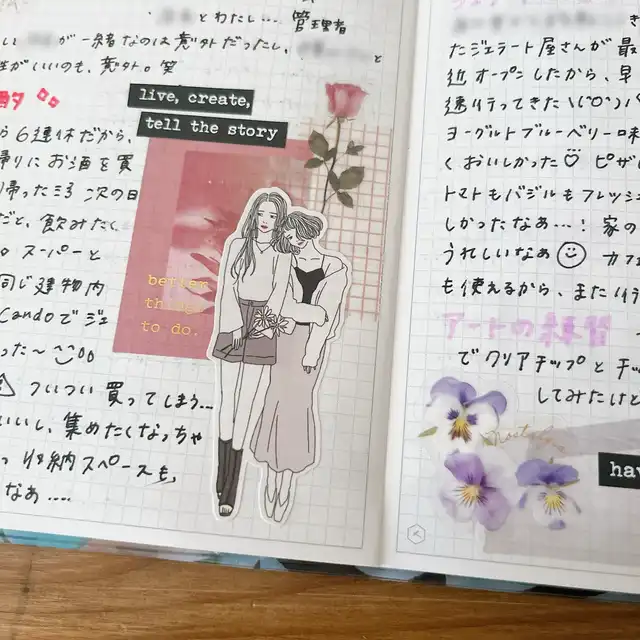 とわたし.... 管理者
が一緒なのは意外だったし、
性がいいのも、意外。笑
live, create,
tell the story
ら6連休だから、
帰りにお酒を買
帰ったころ次の日
だと、飲みたく
スーパーと
同じ建物内
Candoでジェ
った〜
ついつい買ってしまう...
いいし、集めたくなっちゃ
っ収納スペースも、
なぁ....
better
things
to do.
たジェラート屋さんが最
近オープンしたから、早
速行ってきた\(^O^)/
ヨーグルトブルーベリー味
くおいしかった♡ ピザ
トマトもバジルもフレッシ
しかったなぁ...! 家の
うれしいなぁ☺ カフェ
も使えるから、また行
アートの練習
でクリアチップとチッ
してみたけど
hav